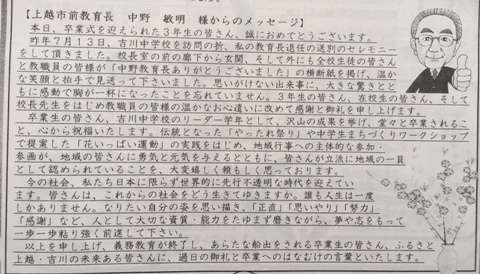 【上越市前教育長 中野 敏明 様からのメッセージ】
本日、卒業式を迎えられた3年生の皆さん、誠におめでとうございます。
昨年7月13日、吉川中学校を訪問の折、私の教育長退任の送別のセレモニー
をして頂きました。校長室の前の廊下から玄関、そして外にも全校生徒の皆さん
と教職員の皆様が「中野教育長ありがとうございました」の横断紙を掲げ、温か
な笑顔と拍手で見送って下さいました。思いがけない出来事に、大きな驚きとと
もに感動で胸が一杯になったことを忘れていません。3年生の皆さん、在校生の皆さん、そして
校長先生をはじめ教職員の皆様の温かなお心遣いに改めて感謝と御礼を申し上げます。
卒業生の皆さん、吉川中学校のリーダー学年として、沢山の成果を挙げ、堂々と卒業されるこ
と、心から祝福いたします。伝統となった「やったれ祭り」や中学生まちづくりワークショップ
で提案した「花いっぱい運動」の実践をはじめ、地域行事への主体的な参加・
参画が、地域の皆さんに勇気と元気を与えるとともに、皆さんが立派に地域の一員
として認められていることを、大変嬉しく頼もしく思っております。
今の社会、私たち日本に限らず世界的に先行不透明な時代を迎えてい
ます。皆さんは、これからの社会をどう生きてゆきますか。誰も人生は一度
しかありません。なりたい自分の姿を思い描き、「正直」「思いやり」「努力」
「感謝」など、人として大切な資質・能力をたゆまず磨きながら、夢や志をもって
一歩一歩粘り強く前進して下さい。
以上を申し上げ、義務教育が終了し、あらたな船出をされる卒業生の皆さん、ふるさと
上越・吉川の未来ある皆さんに、過日の御礼と卒業へのはなむけの言葉といたします。